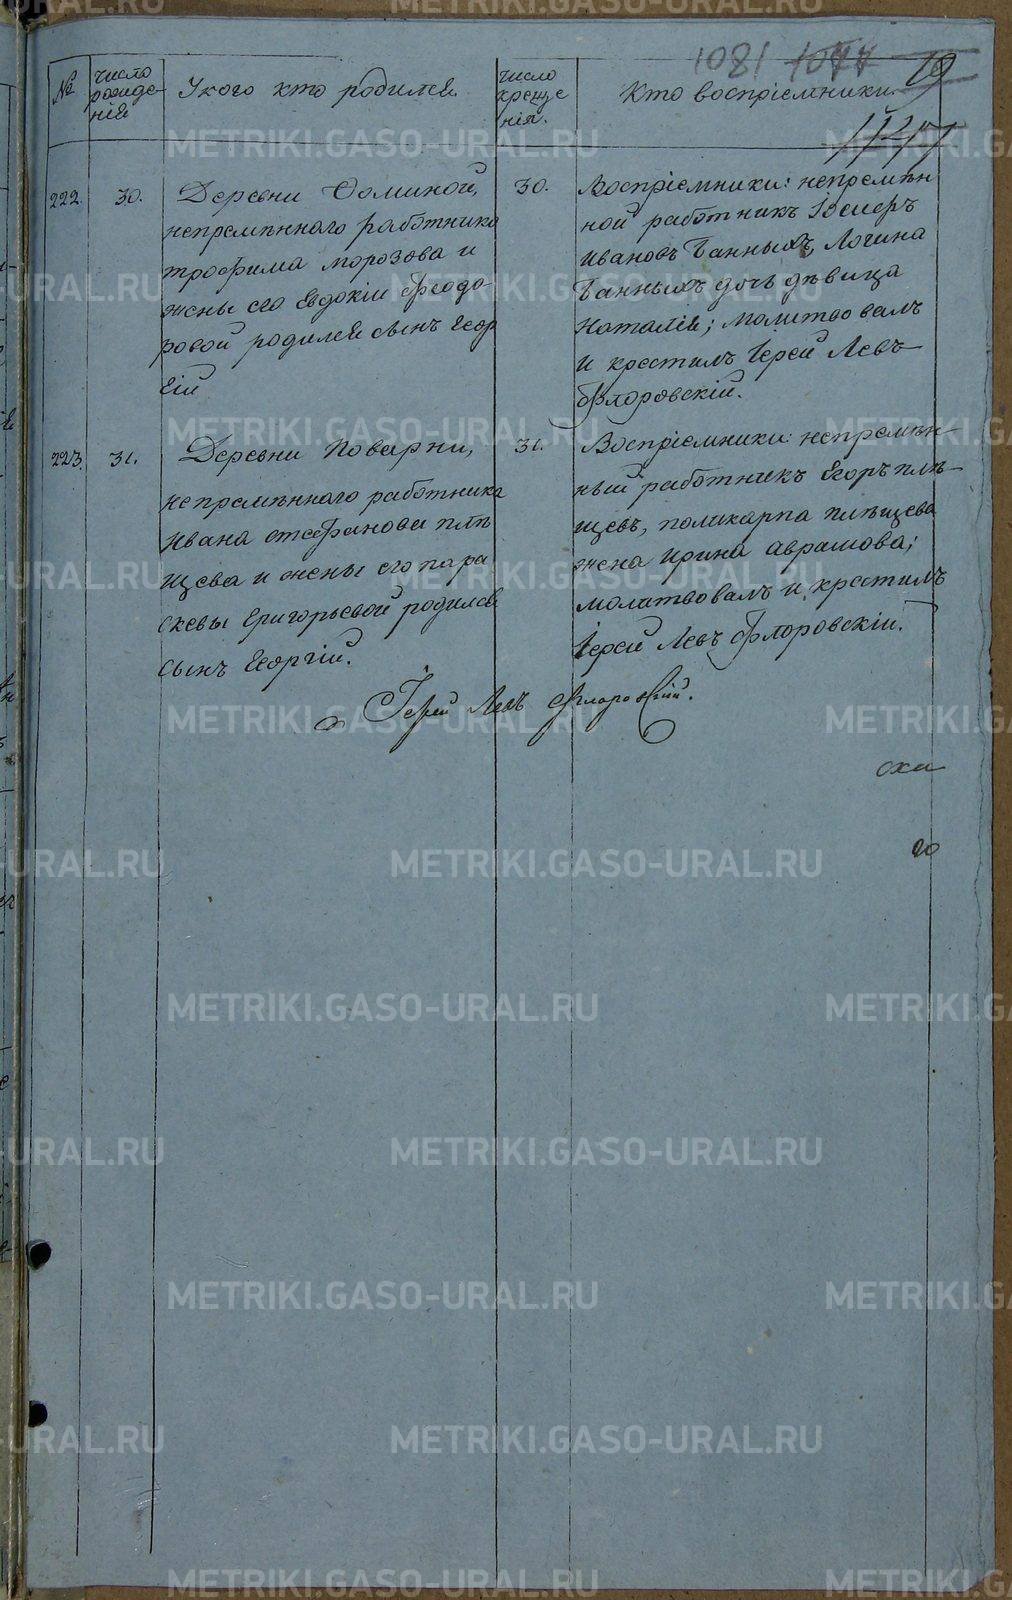 1081 1077 19
1147
№
число рожде-
нія
У кого кто родился
число
креще
нія.
Кто воспріемники.
222.
30.
Деревни Ѳоминой,
непремѣннаго работника
трофима морозова и
жены его Евдокіи Ѳеодо
ровой родился сынъ Геор
гій
30.
Воспріемники: непремѣн
ной работникъ
Ивановъ Банныхъ, Логина
Банныхъ дочь дѣвица
Наталія; молитвовалъ
и крестилъ Іерей Левъ
Флоровскій.
223.
31.
Деревни Поварни,
непремѣннаго работника
Ивана стефанова плѣ
щева и жены его пара
скевы григорьевой родился
сынъ Георгій.
31.
Воспріемники: непремѣн-
ный работникъ Егоръ плѣ-
щевъ, поликарпа плѣщева
жена ирина аврамова;
молитвовалъ и крестилъ
Іерей Левъ Флоровскій.
Іерей Левъ Флоровскій.
METRIKI.GASO-URAL.RU